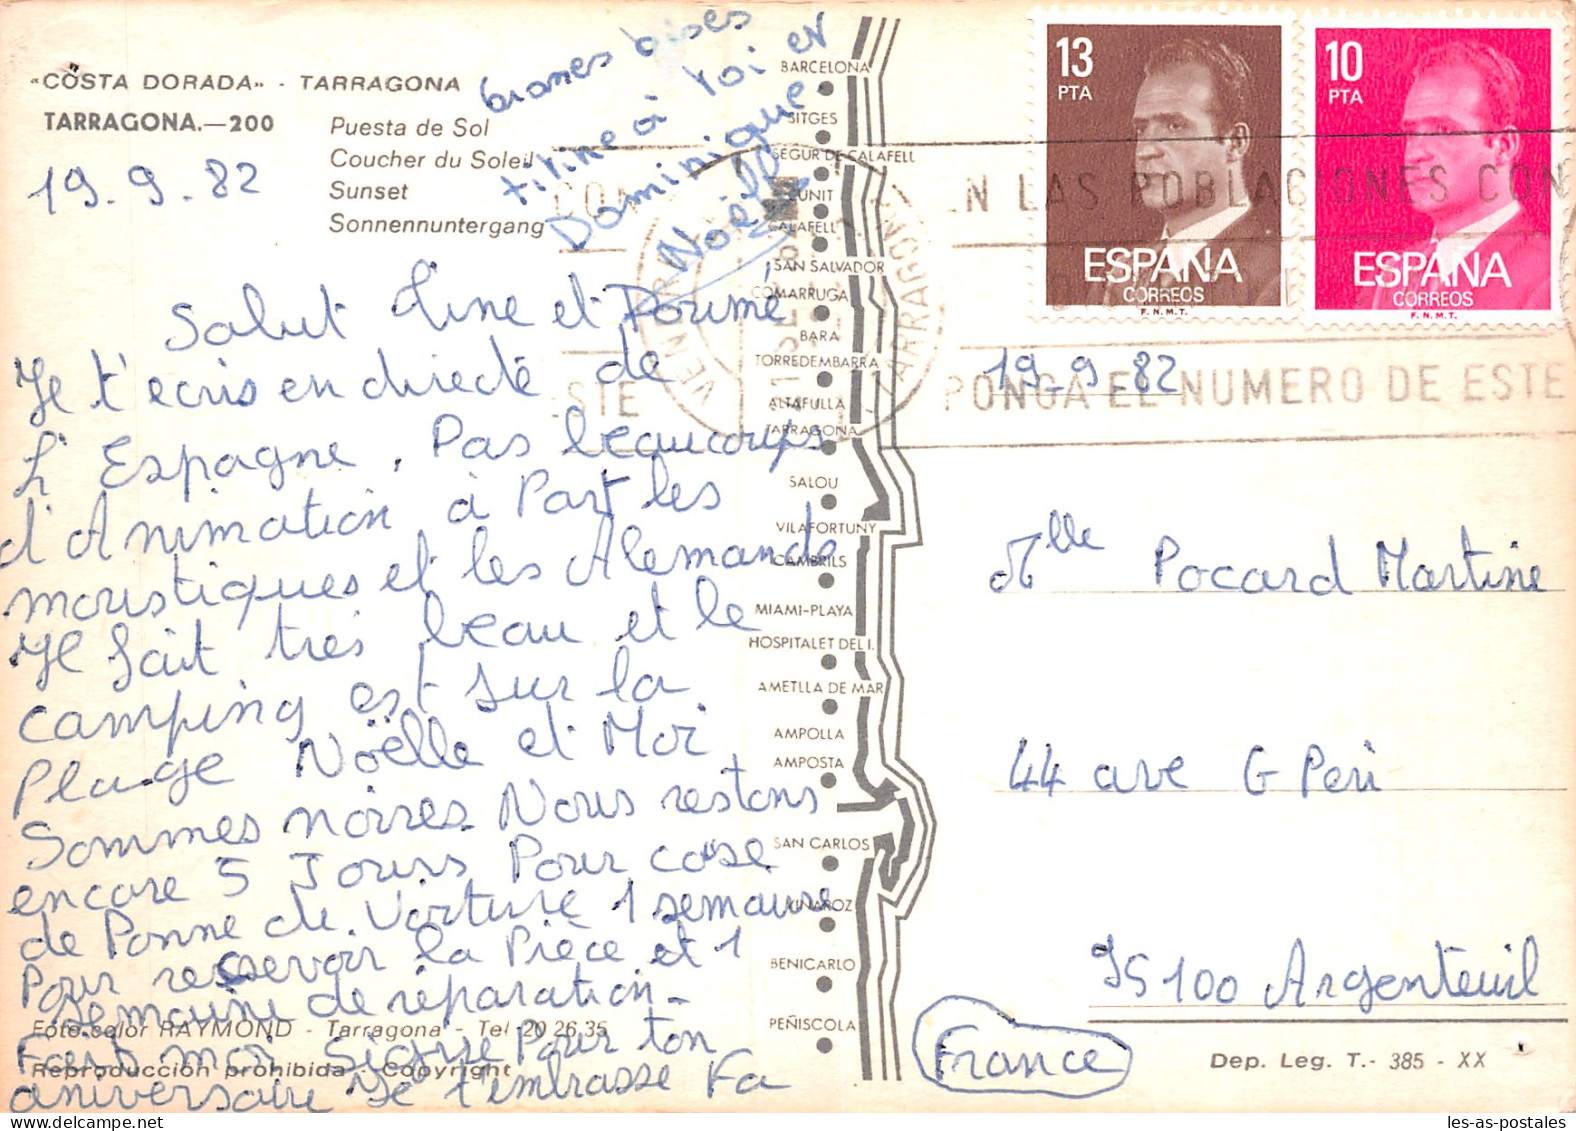 «COSTA DORADA» - TARRAGONA
TARRAGONA.—200
Puesta de Sol
Coucher du Soleil
Sunset
Sonnenuntergang
19.9.82
Grosses bises
titine à toi et
Dominique
Noëlle
Salut Tine et Poumé
Je t'ecris en directe de
L'Espagne, Pas beaucoups
d'Animation à Part les
moustiques et les Alemands
Il fait très beau et le
camping est sur la
Plage Noëlle et Moi
Sommes noires Nous restons
encore 5 Jours Pour cose
de Panne de Voiture 1 semaine
Pour recevoir la Pièce et 1
semaine de réparation-
Fais moi signe Pour ton
aniversaire Je t'embrasse Fa
Foto color RAYMOND - Tarragona - Tel 20 26 35
Reproducción prohibida - Copyright
BARCELONA
SITGES
SEGUR DE CALAFELL
CUNIT
CALAFELL
SAN SALVADOR
COMARRUGA
BARA
TORREDEMBARRA
ALTAFULLA
TARRAGONA
SALOU
VILAFORTUNY
CAMBRILS
MIAMI-PLAYA
HOSPITALET DEL I.
AMETLLA DE MAR
AMPOLLA
AMPOSTA
SAN CARLOS
VINAROZ
BENICARLO
PEÑISCOLA
13
PTA
ESPAÑA
CORREOS
F.N.M.T.
10
PTA
ESPAÑA
CORREOS
F.N.M.T.
EN LAS POBLACIONES CON
PONGA EL NUMERO DE ESTE
CON
ESTE
TARRAGONA
19-9-82
Mlle Pocard Martine
44 ave G Peri
95100 Argenteuil
France
Dep. Leg. T.- 385 - XX
les-as-postales